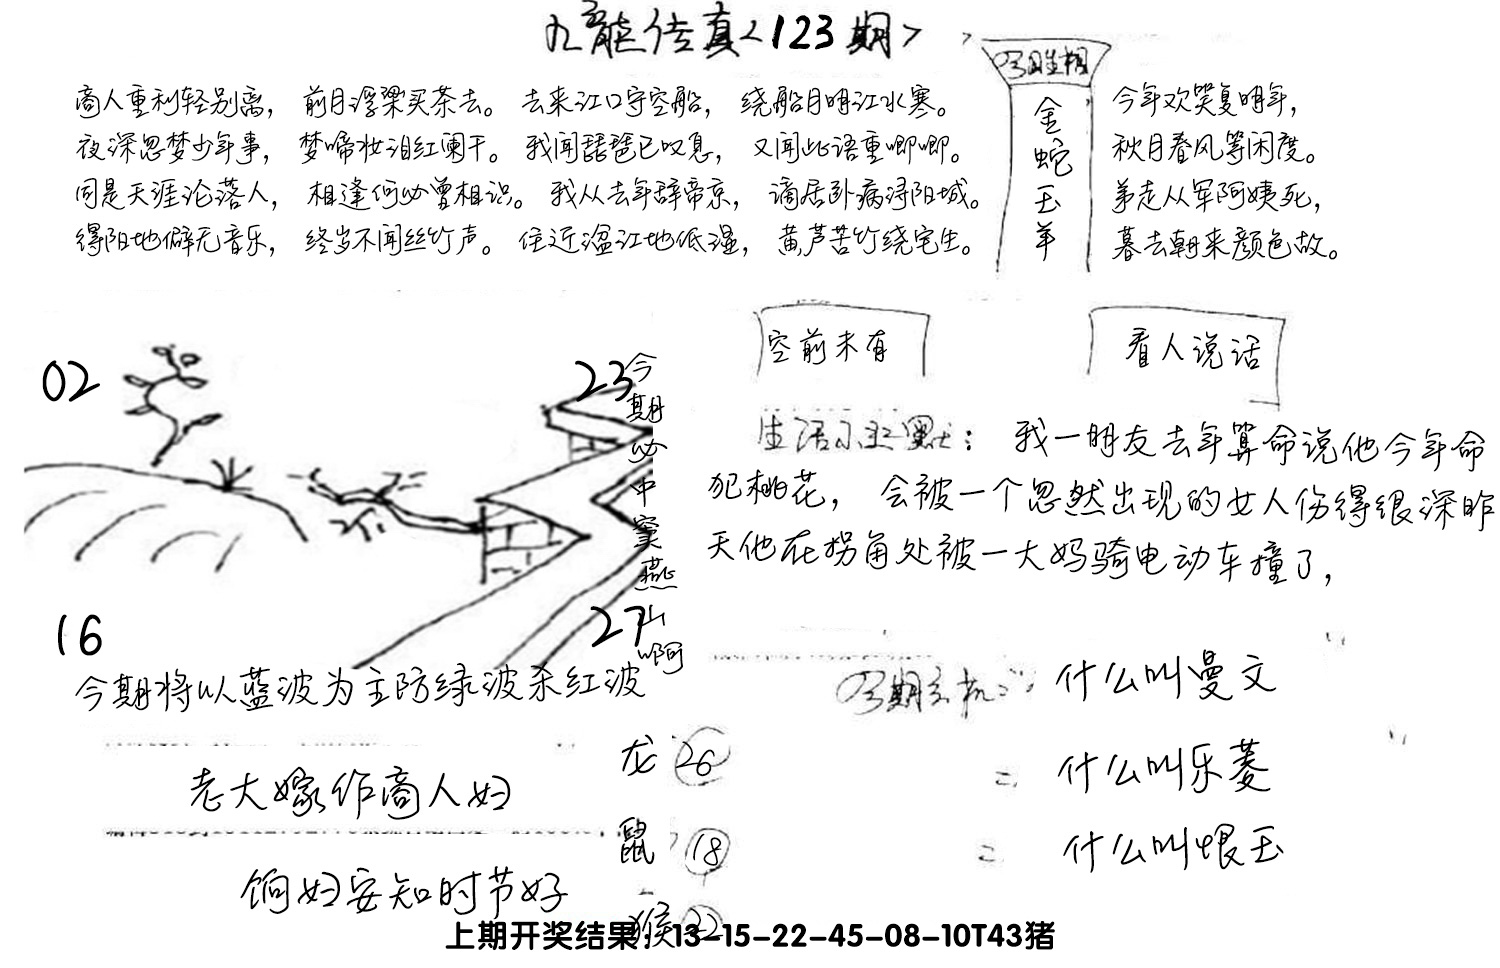 九龍传真<123期>
商人重利轻别离， 前月浮梁买茶去。 去来江口守空船， 绕船月明江水寒。
夜深忽梦少年事， 梦啼妆泪红阑干。 我闻琵琶已叹息， 又闻此语重唧唧。
同是天涯沦落人， 相逢何必曾相识。 我从去年辞帝京， 谪居卧病浔阳城。
得阳地僻无音乐， 终岁不闻丝竹声。 住近湓江地低湿， 黄芦苦竹绕宅生。
今期生相
金蛇玉羊
今年欢笑复明年，
秋月春风等闲度。
弟走从军阿姨死，
暮去朝来颜色故。
空前未有
看人说话
02
23
16
27
今期必中窦燕山啊
生活小幽默： 我一朋友去年算命说他今年命
犯桃花， 会被一个忽然出现的女人伤得很深昨
天他在拐角处被一大妈骑电动车撞了，
今期将以蓝波为主防绿波杀红波
老大嫁作商人妇
饷妇安知时节好
龙 26
鼠 18
猴 22
今期玄机
什么叫曼文
二 什么叫乐菱
二 什么叫恨玉
上期开奖结果：13-15-22-45-08-10T43猪